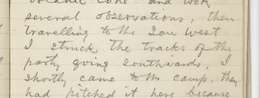 several observations, then
travelling to the Sou West
I struck the tracks of the
party going Southwards, I
shortly came to the camp, they
had pitched it here because